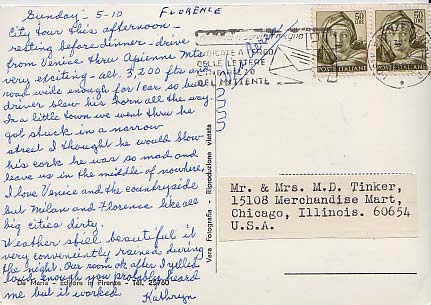 Sunday - 5-10
FLORENCE
City tour this afternoon -
resting before dinner - drive
from Venice thru Apienne Mts
very exciting - alt. 3,200 fts and
road wide enough for 1 car so bus
driver blew his horn all the way.
In a little town we went thru he
got stuck in a narrow
street I thought he would blow
his cork he was so mad and
leave us in the middle of nowhere.
I love Venice and the countryside
but Milan and Florence like all
big cities dirty.
Weather still beautiful it
very conveniently rained during
the night. Our room ok after I yelled
loud enough you probably heard
me but it worked
Kathryn
INDICATE A TERGO
DELLE LETTERE
L'INDIRIZZO
DEL MITTENTE
50
POSTE ITALIANE
50
POSTE ITALIANE
Vera Fotografia - Riproduzione vietata
Mr. & Mrs. M.D. Tinker,
15108 Merchandise Mart,
Chicago, Illinois. 60654
U.S.A.
De Maria - Editore in Firenze - Tel. 25760